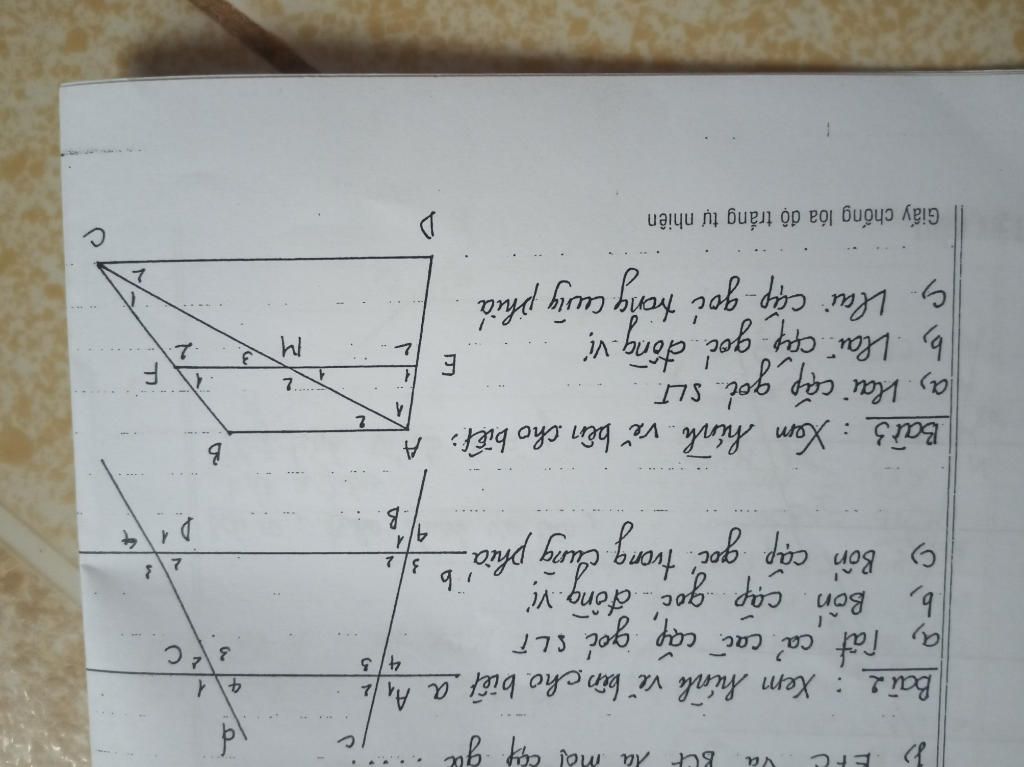 f) EFC và BCF là một cặp góc ......
Bài 2 : Xem hình vẽ bên cho biết
a, Tất cả các cặp góc SLT
b, Bốn cặp góc đồng vị
c) Bốn cặp góc trong cùng phía
c
d
A
a
1
2
3
4
C
1
2
3
4
b
B
1
2
3
4
D
1
2
3
4
Bài 3 : Xem hình vẽ bên cho biết:
a, Hai cặp góc SLT
b, Hai cặp góc đồng vị
c, Hai cặp góc trong cùng phía
A
B
1
2
E
1
2
M
1
2
3
F
1
2
D
C
1
2
Giấy chống lóa độ trắng tự nhiên